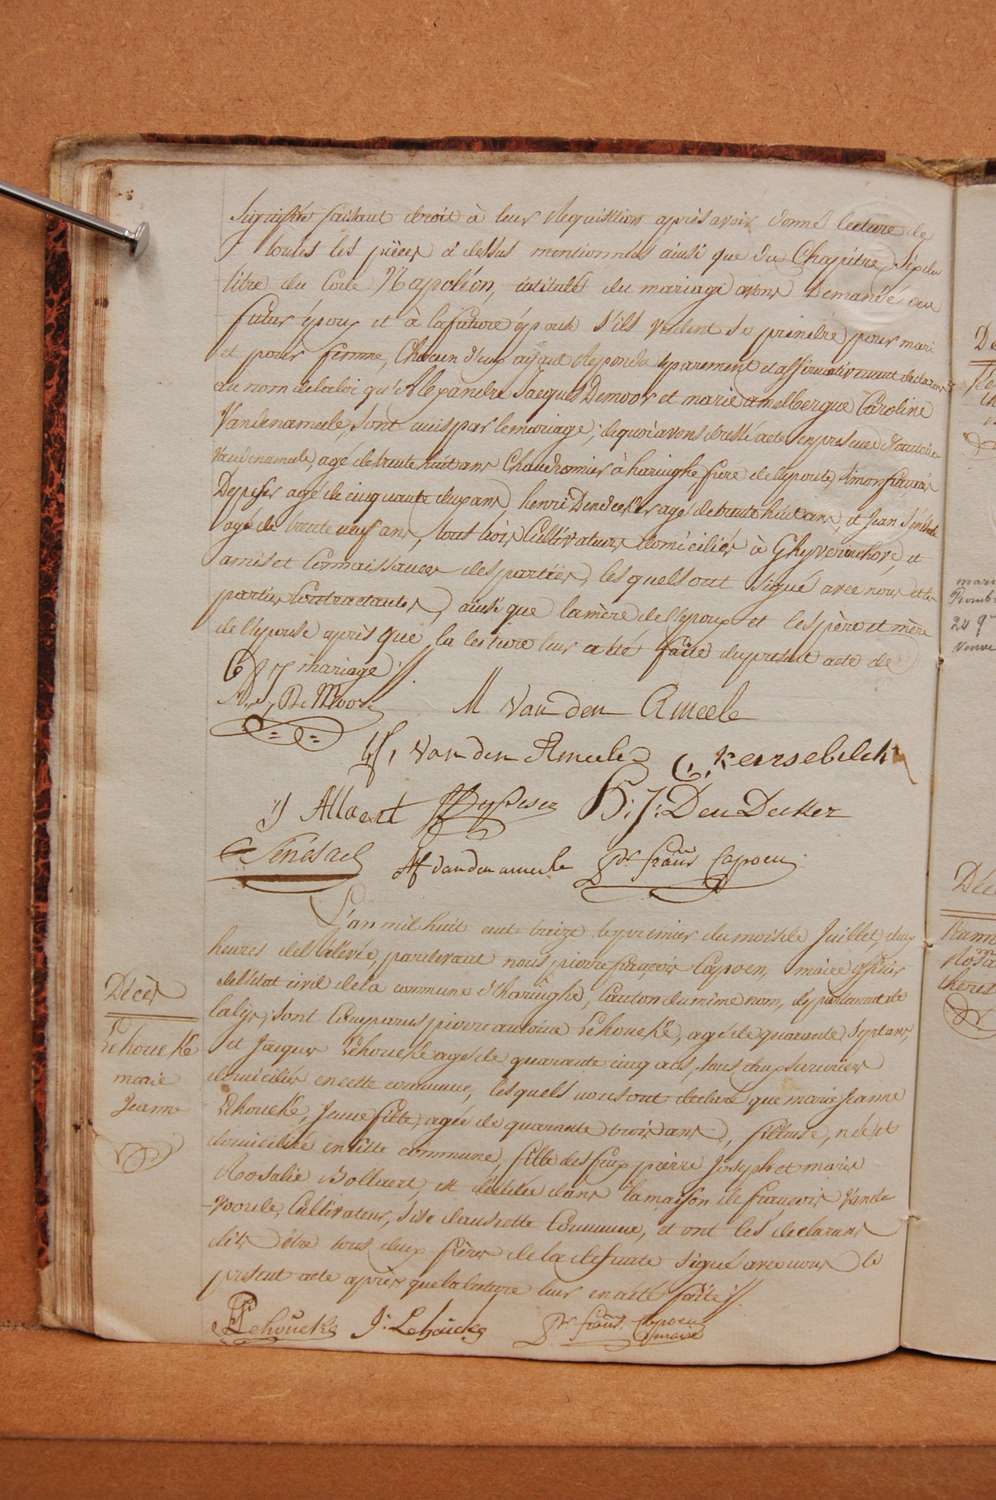 Susfaisant droit à leur requisition après avoir donné lecture de
toutes les pièces ci dessus mentionnées ainsi que du Chapitre Six du
titre du Code Napoléon, intitulé du mariage avons demandé au
futur époux et à la future épouse s'ils veulent se prendre pour mari
et pour femme, Chacun d'eux ayant repondu separement et affirmativement declarons
au nom de la loi qu'Alexandre Jacques Demoor et marie amelbergue Caroline
Vandenameele, sont unis par le mariage; de quoi avons dressé acte en presence d'antoine
Vandenameele agé de trente huit ans Chaudronnier à haringhe frère de l'epouse, Simon francois
Depyser agé de cinquante deux ans, henri Dendecker agé de trente huit ans, et Jean Sénéschal
agé de trente neuf ans, tous trois Cultivateurs domiciliés à Ghyverinchove, et
amis et Connaissances des parties, les quels ont signé avec nous et les
parties Contractantes, ainsi que la mère de l'époux et les père et mère
de l'épouse après que la lecture leur a été faite du present acte de
mariage
A. J. De Moor M Van den Ameele
Van den Ameele C, Kersebilck
J Allaert H: J: Den Decker
Sénéscal Af van den ameele Pre frans Capoen
L'an mil huit cent treize le premier du mois de Juillet, deux
heures de relevée, pardevant nous pierre francois Capoen, maire officier
de l'état civil de la commune d'haringhe, Canton du même nom, departement de
la lys, sont Comparus pierre antoine Lehoucke, agé de quarante sept ans,
et Jacques Lehoucke agé de quarante cinq ans, tous deux
domiciliés en cette commune, les quels nous ont declaré que marie Jeanne
Lehoucke, Jeune fille, agée de quarante trois ans, fileuse, née et
domiciliée en cette commune, fille des feux pierre Joseph et marie
Rosalie Bollaert, est decedée dans la maison de francois Vande
-voorde, Cultivateur, sise dans cette Commune, et ont les declarans
dit être tous deux frères de la defunte signés avec nous le
present acte après que la lecture leur en a été faite
Lehoucke J: Lehoucke Pre frans Capoen
maire
Décès
Lehoucke
marie
Jeanne